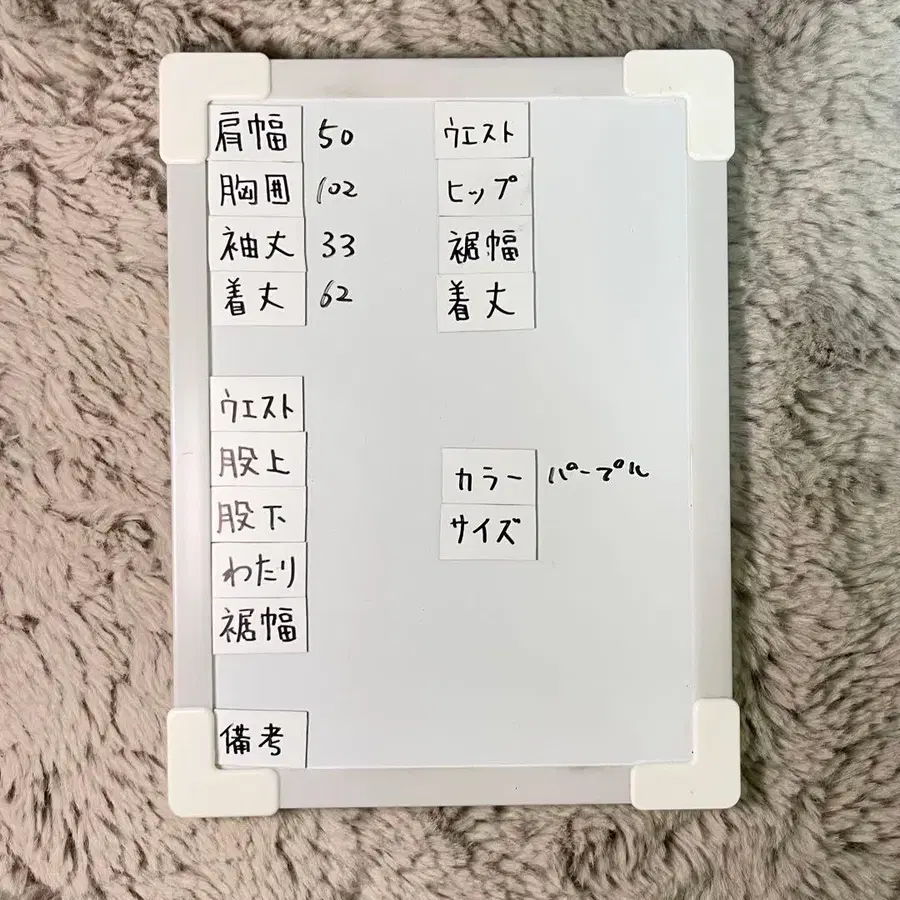 肩幅 50
胸囲 102
袖丈 33
着丈 62
ウエスト
股上
股下
わたり
裾幅
備考
ウエスト
ヒップ
裾幅
着丈
カラー パープル
サイズ